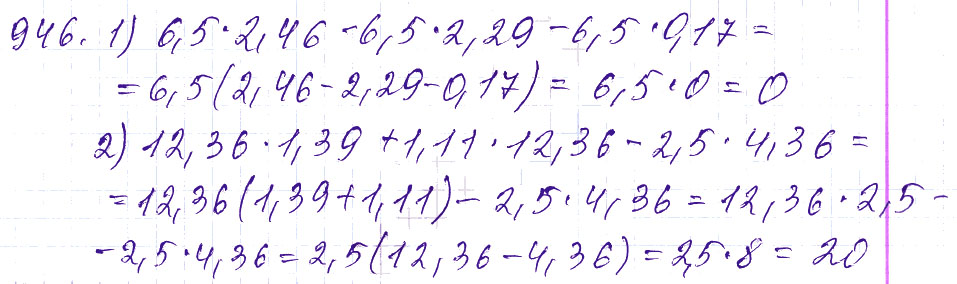 946. 1) 6,5·2,46-6,5·2,29-6,5·0,17=
=6,5(2,46-2,29-0,17)= 6,5·0=0
2) 12,36·1,39+1,11·12,36-2,5·4,36=
=12,36(1,39+1,11)-2,5·4,36=12,36·2,5-
-2,5·4,36=2,5(12,36-4,36)=2,5·8=20